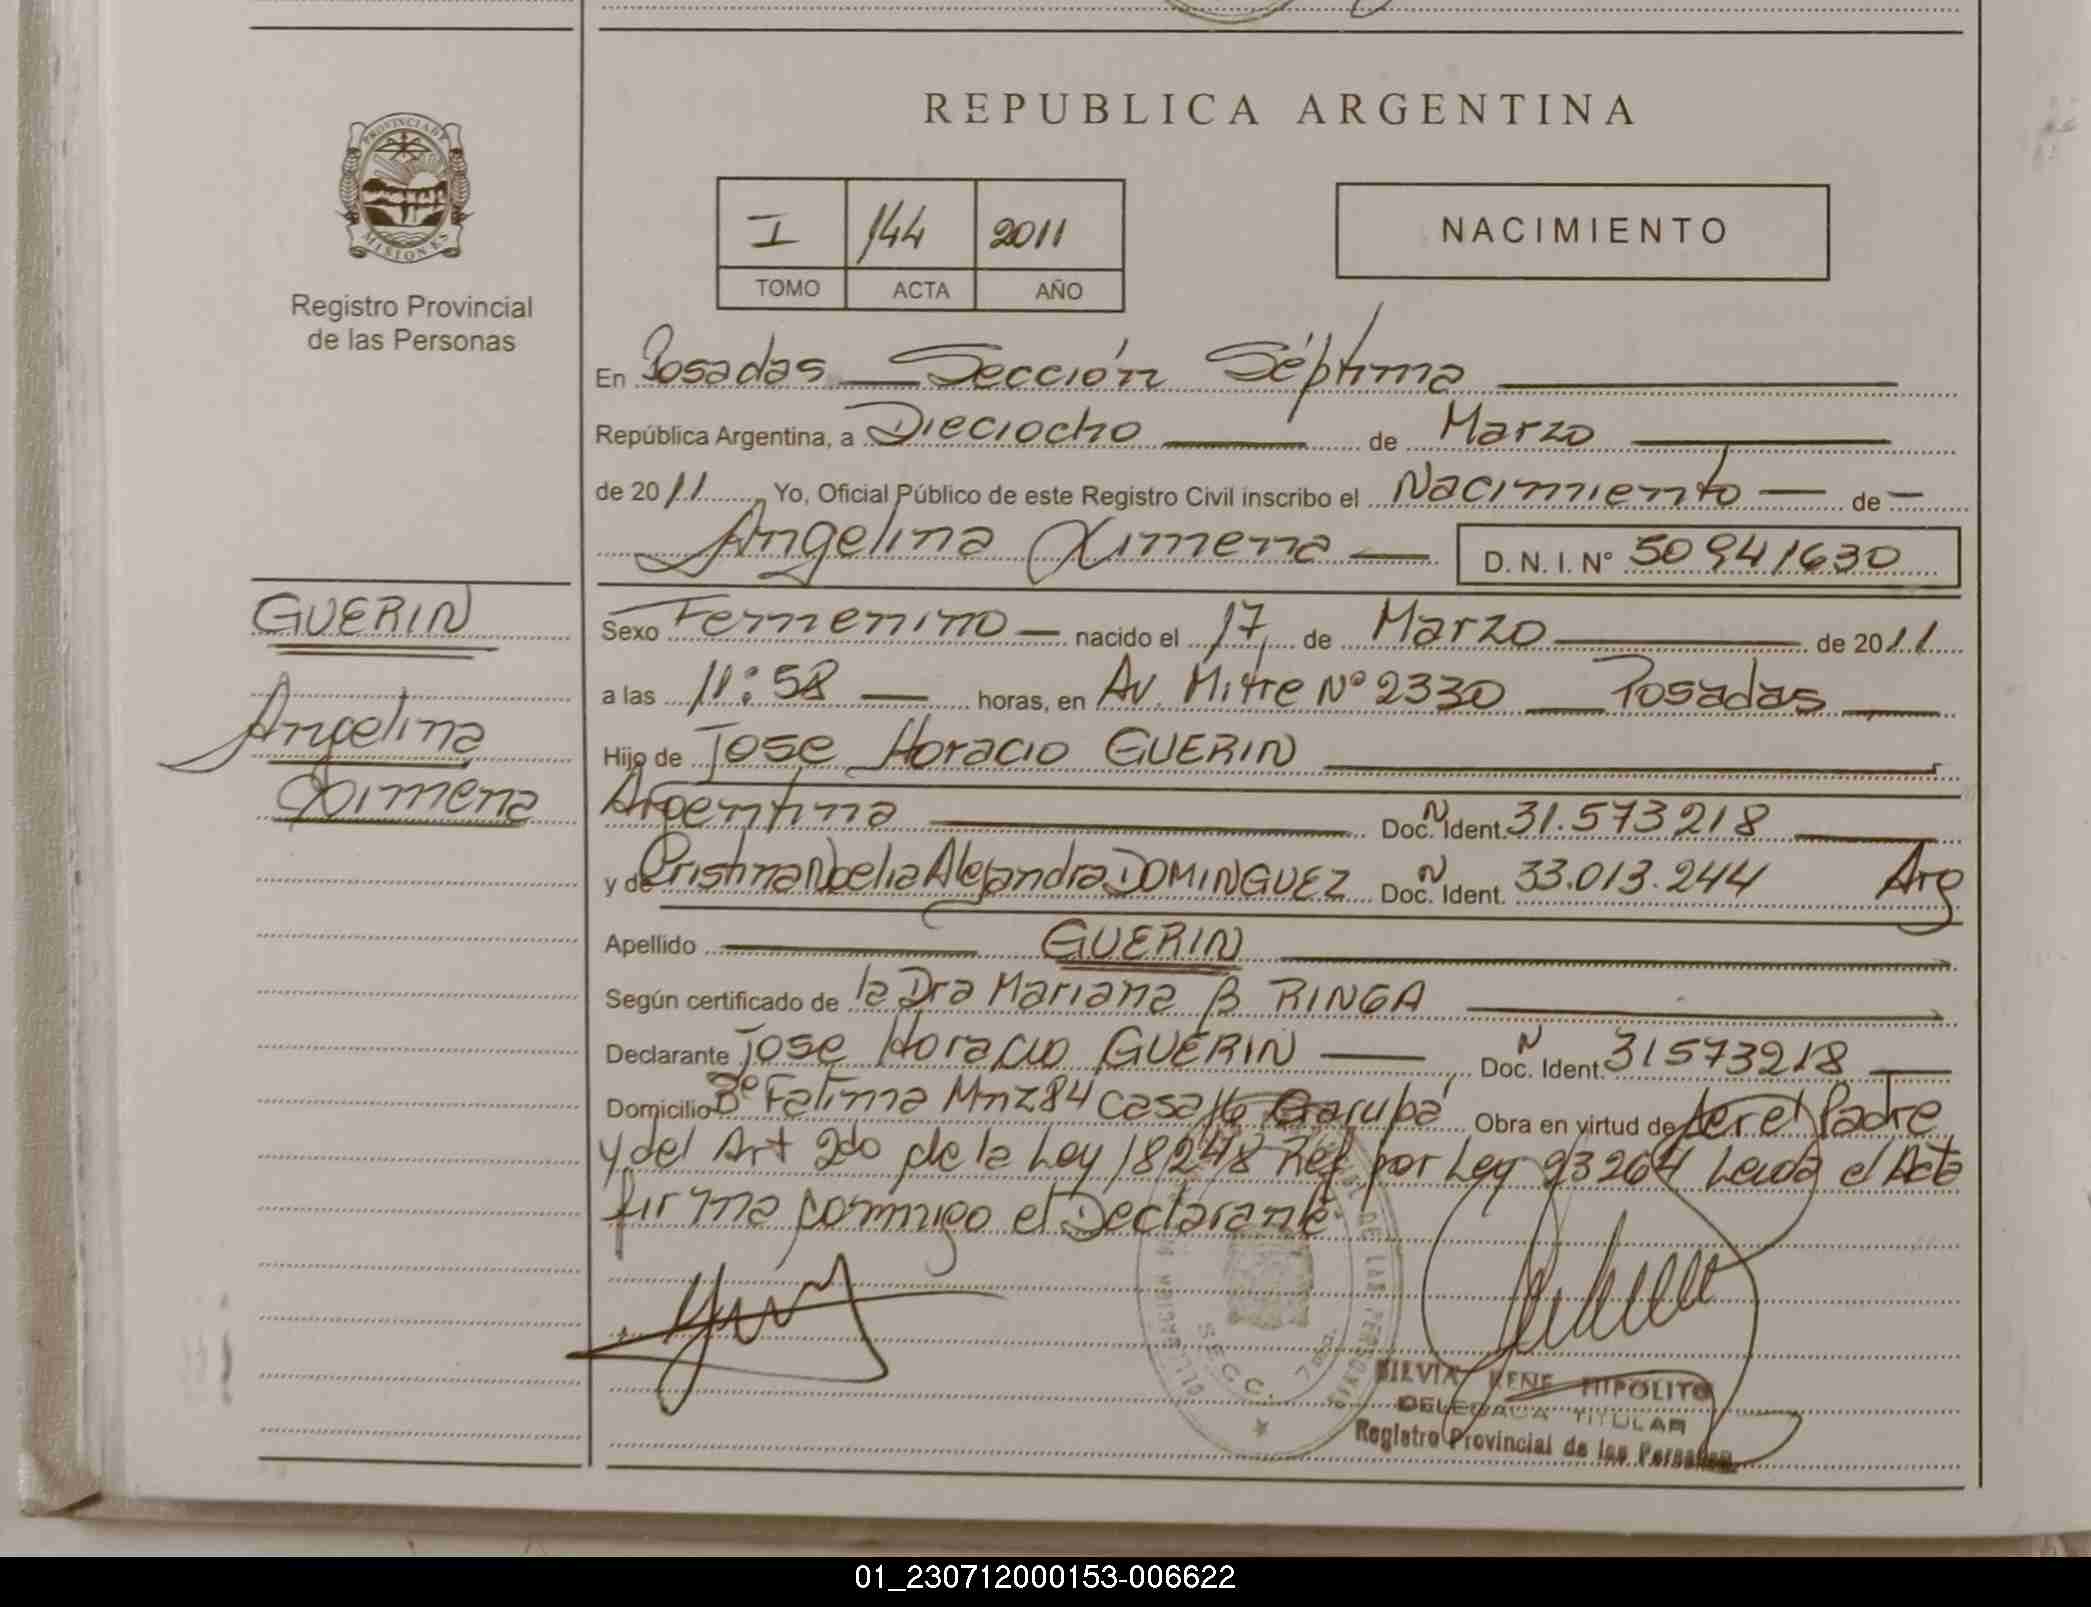 REPUBLICA ARGENTINA
PROVINCIA DE
MISIONES
Registro Provincial
de las Personas
I 144 2011
TOMO ACTA AÑO
NACIMIENTO
En Posadas Sección Séptima
República Argentina, a Dieciocho de Marzo
de 2011 Yo, Oficial Público de este Registro Civil inscribo el Nacimiento de
Angelina Ximena D. N. I. Nº 50941630
GUERIN
Angelina
Ximena
Sexo Femenino nacido el 17 de Marzo de 2011
a las 11:58 horas, en Av. Mitre Nº 2330 Posadas
Hijo de Jose Horacio GUERIN
Argentina Doc. N Ident. 31.573.218
y de Cristina Noelia Alejandra DOMINGUEZ Doc. N Ident. 33.013.244 Arg
Apellido GUERIN
Según certificado de la Dra Mariana B RINGA
Declarante Jose Horacio GUERIN Doc. N Ident. 31573218
Domicilio Bº Fatima Mnz 84 casa 16 Garupá Obra en virtud de ser el Padre
y del Art 2do de la Ley 18248 Ref por Ley 23264 Leida el Acta
firma conmigo el Declarante
DE LAS PERSONAS
SECC. 7ma.
SILVIA RENE HIPOLITO
DELEGADA TITULAR
Registro Provincial de las Personas
01_230712000153-006622